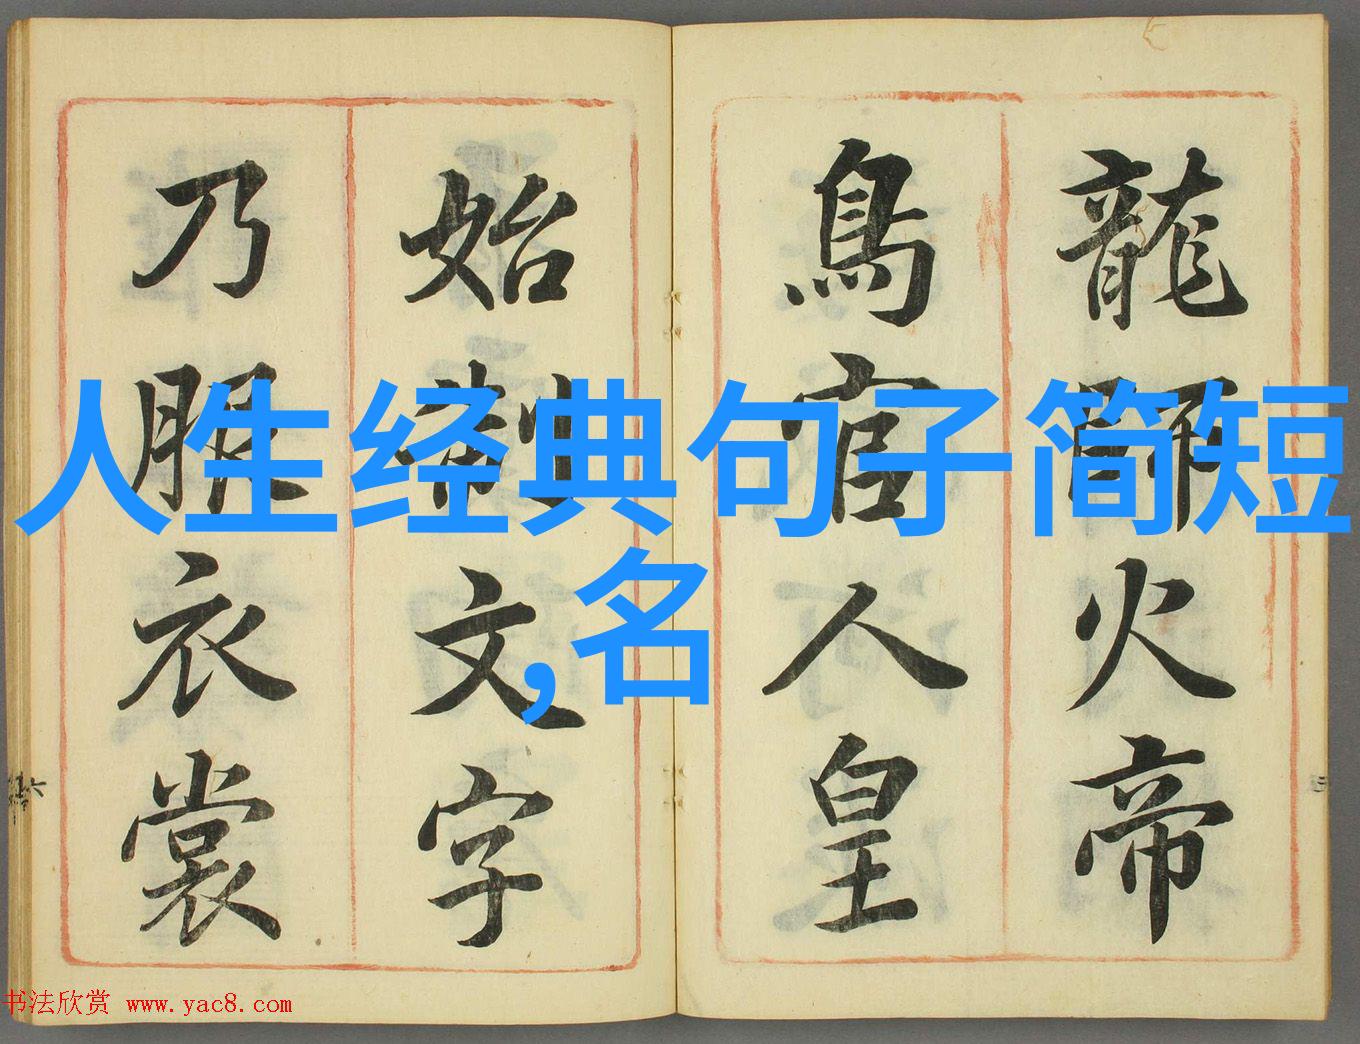 龍師火帝
鳥官人皇
始制文字
乃服衣裳
人生经典句子简短
,名
书法欣赏 www.yac8.com